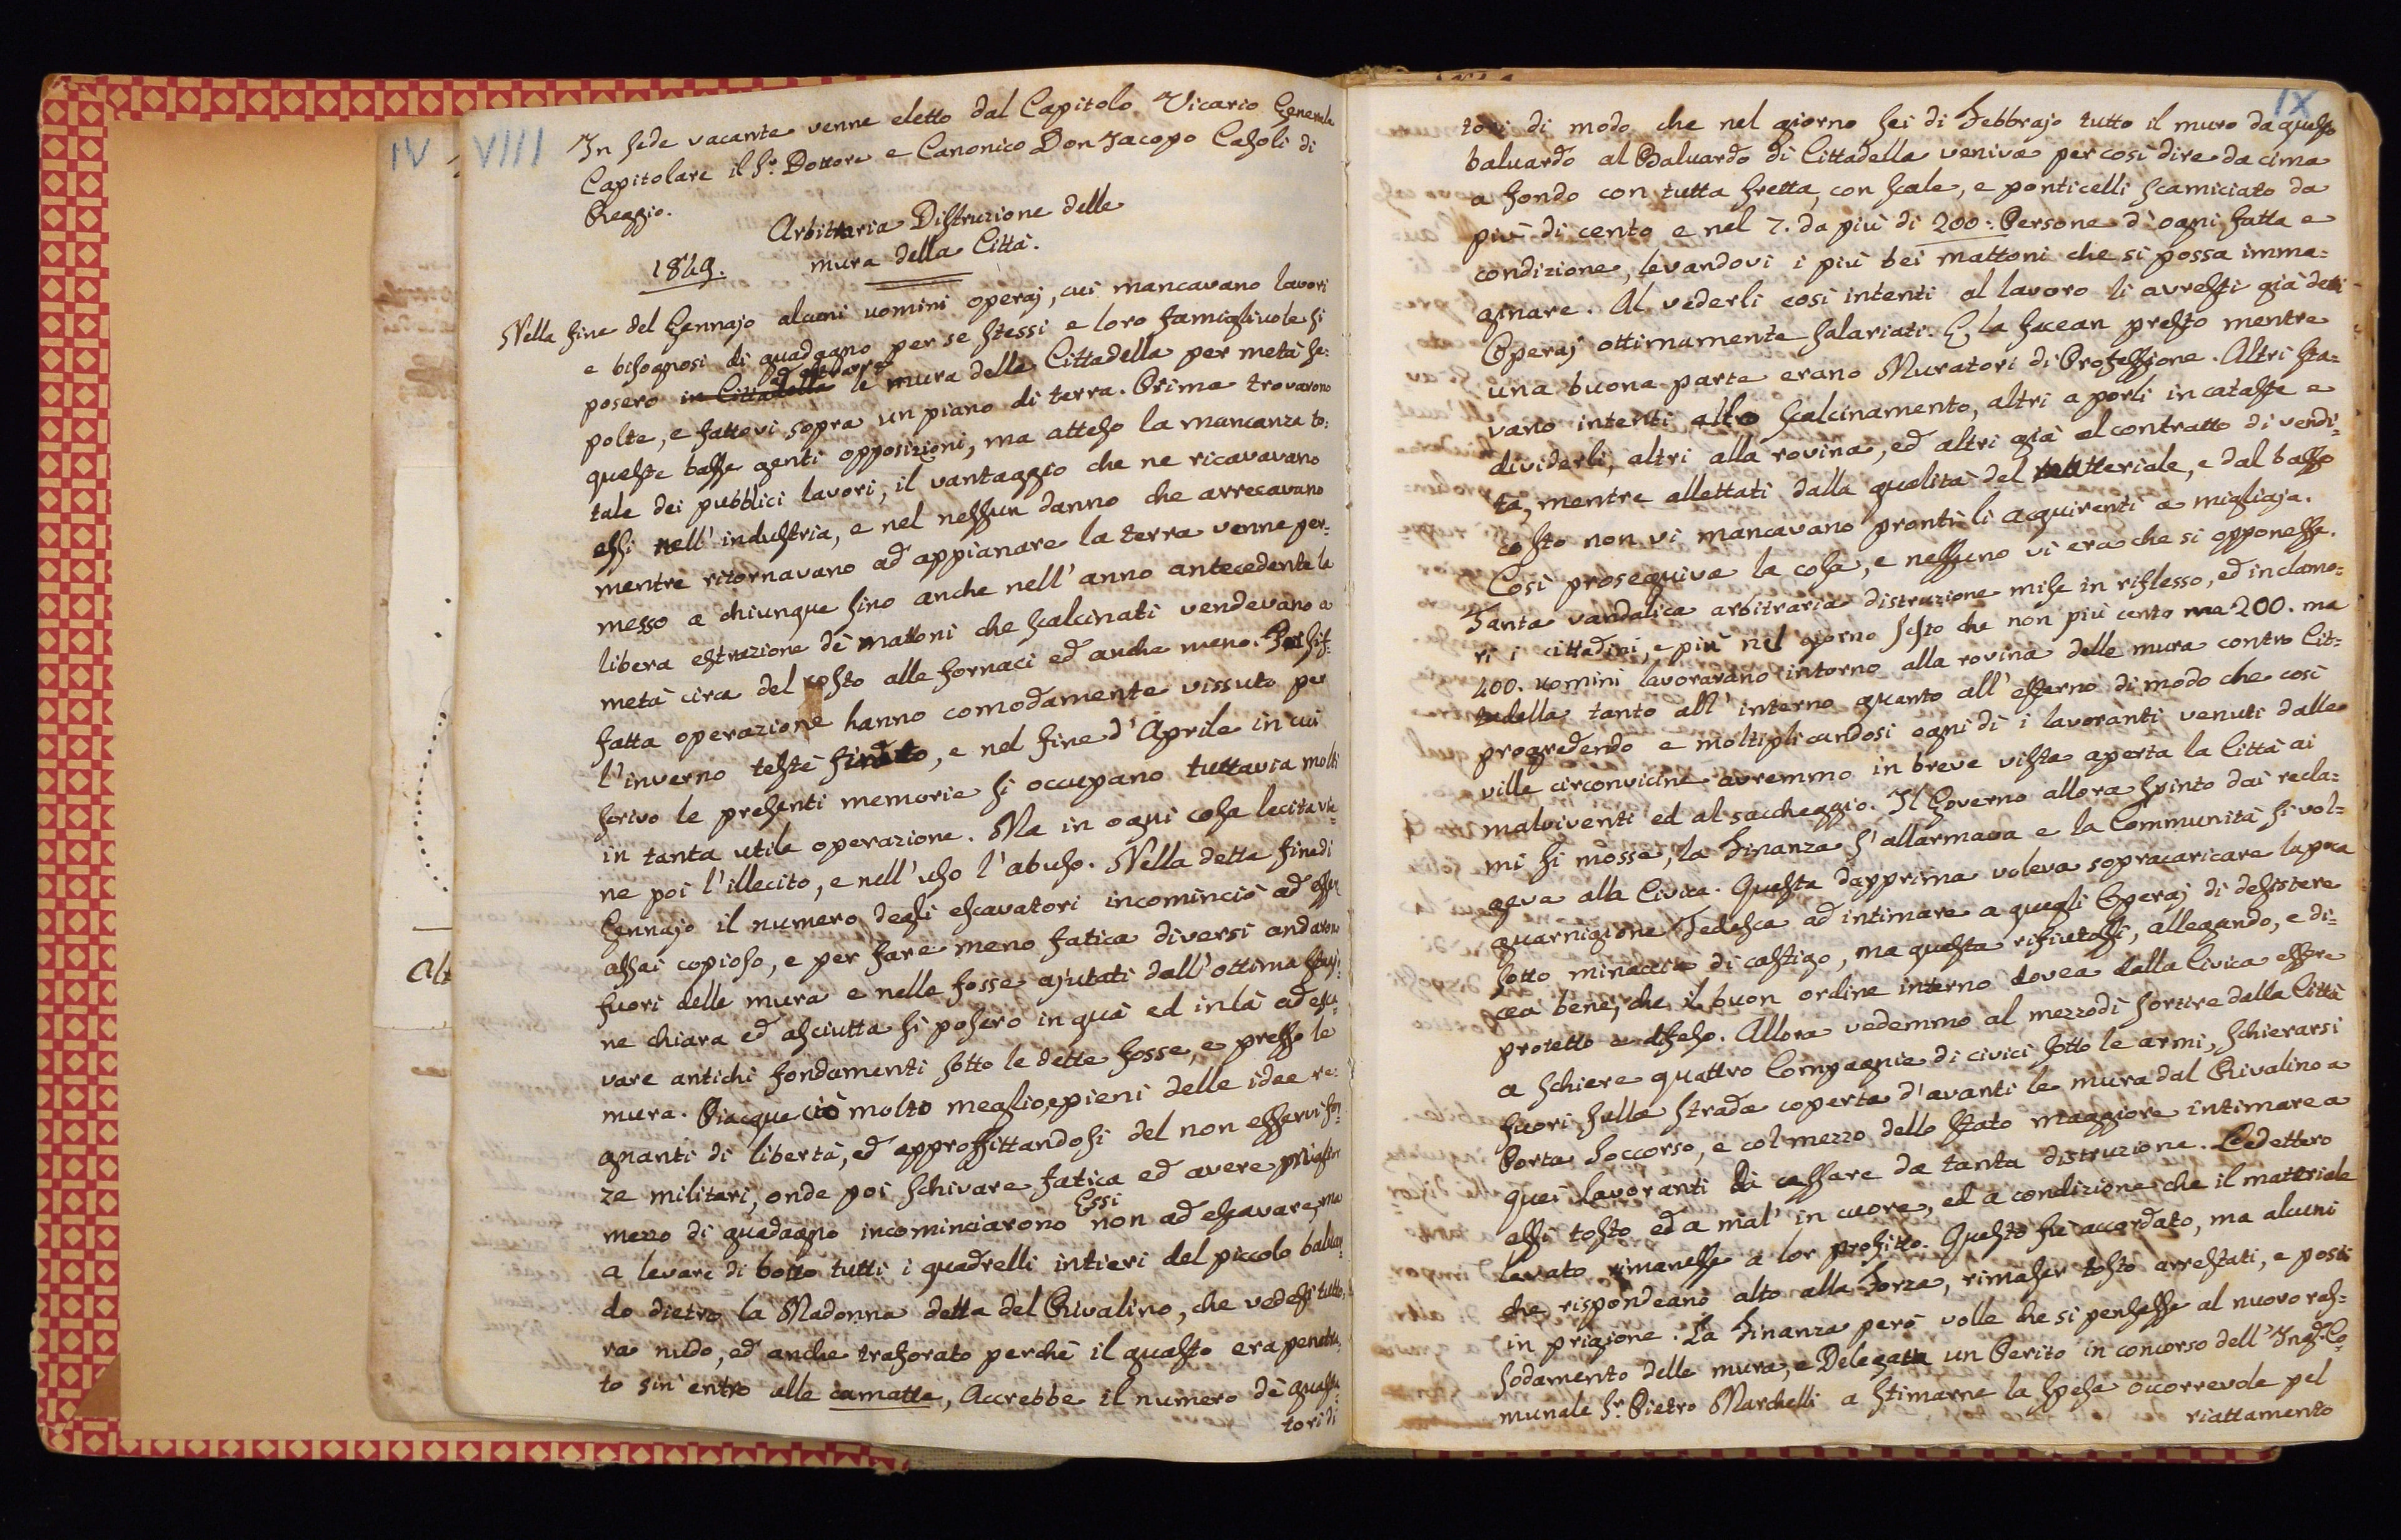 IV
VIII
In sede vacante venne eletto dal Capitolo Vicario Generale
Capitolare il Sr. Dottore e Canonico Don Jacopo Casoli di
Reggio.
Arbitraria Distruzione delle
1849. mura della Città.
Nella fine del Gennajo alcuni uomini operaj, cui mancavano lavori
e bisognosi di guadgano per se stessi e loro famigliuole si
posero in Cittadella le mura della Cittadella per metà se=
polte, e fattovi sopra un piano di terra. Prima trovarono
queste basse genti opposizioni, ma atteso la mancanza to=
tale dei pubblici lavori, il vantaggio che ne ricavavano
essi nell'industria, e nel nessun danno che arrecavano
mentre ritornavano ad appianare la terra venne per=
messo a chiunque sino anche nell'anno antecedente la
libera estrazione de mattoni che scalcinati vendevano a
metà circa del costo alle fornaci ed anche meno. sif=
fatta operazione hanno comodamente vissuto per
l'inverno testè finito, e nel fine d'Aprile in cui
scrivo le presenti memorie si occupano tuttavia molti
in tanta utile operazione. Ma in ogni cosa lecita vie=
ne poi l'illecito, e nell'uso l'abuso. Nella detta fine di
Gennajo il numero degli escavatori incominciò ad esser
assai copioso, e per fare meno fatica diversi andarono
fuori delle mura e nelle fosse ajutati dall'ottima stagio=
ne chiara ed asciutta si posero in quà ed in là ad esca=
vare antichi fondamenti sotto le dette fosse, e presso le
mura. Piacque ciò molto meglio, e pieni delle idee re=
gnanti di libertà, ed approffittandosi del non esservi for=
ze militari, onde poi schivare fatica ed avere miglior
mezzo di guadagno incominciarono Essi non ad escavare, ma
a levare di botto tutti i quadrelli intieri del piccolo baluar=
do dietro la Madonna detta del Rivalino, che vedesi tutto=
ra nudo, ed anche traforato perchè il guasto era penetra=
to sin'entro alle camatte, Accrebbe il numero de guasta=
tori di
Alt
IX
tori di modo che nel giorno sei di Febbrajo tutto il muro da questo
baluardo al Baluardo di Cittadella veniva per così dire da cima
a fondo con tutta fretta, con scale, e ponticelli scamiciato da
più di cento e nel 7. da più di 200: Persone d'ogni fatta e
condizione, levandovi i più bei mattoni che si possa imma=
ginare. Al vederli così intenti al lavoro li avresti già detti
Operaj ottimamente salariati. E, la facean presto mentre
una buona parte erano Muratori di Professione. Altri sta=
vano intenti allo scalcinamento, altri a porli in cataste e
dividerli, altri alla rovina, ed altri già al contratto di vendi=
ta, mentre allettati dalla qualità del matteriale, e dal basso
costo non vi mancavano pronti li acquirenti a migliaja.
Così proseguiva la cosa, e nessuno vi era che si opponesse.
Tanta vandalica arbitraria distruzione mise in riflesso, ed in clamo=
ri i cittadini, e più nel giorno sesto che non più cento ma 200. ma
400. uomini lavoravano intorno alla rovina delle mura contro Cit=
tadella tanto all'interno quanto all'esterno di modo che così
progredendo e moltiplicandosi ogni dì i lavoranti venuti dalle
ville circonvicine avremmo in breve vista aperta la Città ai
malviventi ed al saccheggio. Il Governo allora spinto dai recla=
mi si mosse, la Finanza s'allarmava e la Communità si vol=
geva alla Civica. Questa dapprima voleva sopracaricare la poca
guarnigione Tedesca ad intimare a quegli Operaj di desistere
sotto minaccia di castigo, ma questa rifiutossi, allegando, e di=
cea bene, che il buon ordine interno dovea dalla Civica essere
protetto e difeso. Allora vedemmo al mezzodì sortire dalla Città
a schiere quattro Compagnie di civici sotto le armi, schierarsi
fuori sulla strada coperta d'avanti le mura dal Rivalino a
Porta Soccorso, e col mezzo dello stato maggiore intimare a
quei Lavoranti di cessare da tanta distruzione. Cedettero
essi tosto ed a mal'in cuore, ed a condizione che il matteriale
levato rimanesse a lor profitto. Questo fu accordato, ma alcuni
che rispondeano alto alla Forza, rimaser tosto arrestati, e posti
in prigione. La Finanza però volle che si pensasse al nuovo ras=
sodamento delle mura, e Delegato un Perito in concorso dell'Ingr. Co=
munale Sr. Pietro Marchelli a stimarne la spesa occorrevole pel
riattamento